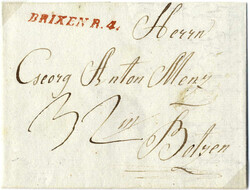 BRIXEN R. 4.
Herrn
Georg Anton Menz
Botzen